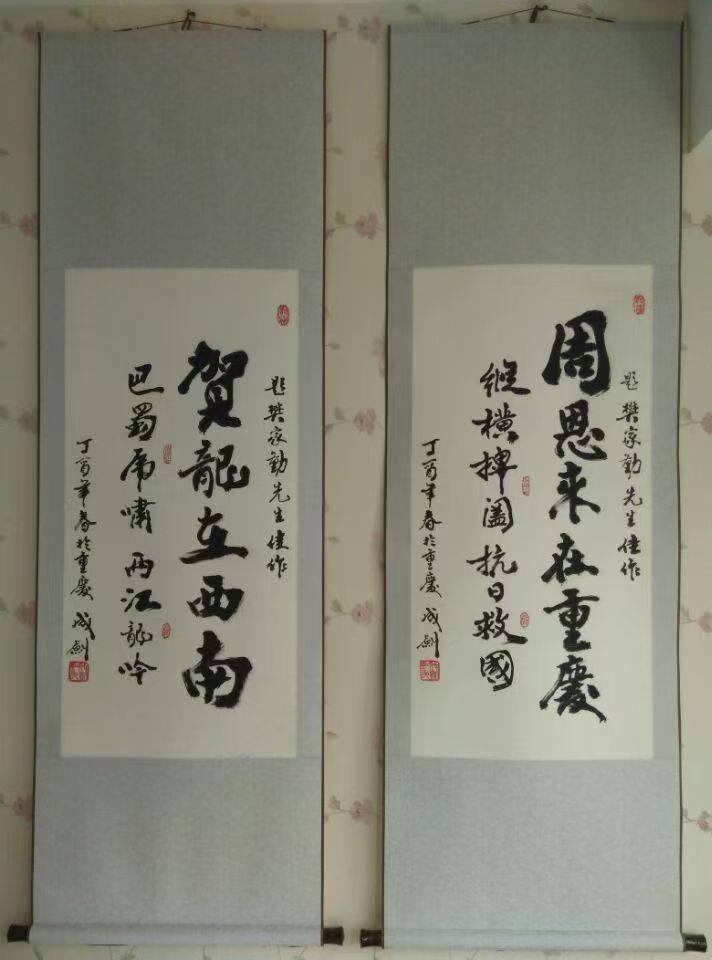 題樊家勤先生佳作
周恩来在重慶
縱橫捭阖抗日救國
丁酉年春於重慶 成劍
題樊家勤先生佳作
贺龍在西南
巴蜀虎嘯 两江龍吟
丁酉年春於重慶 成劍